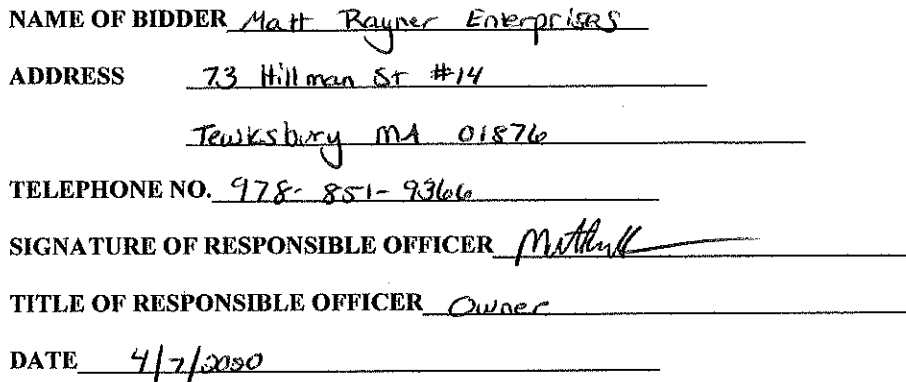 NAME OF BIDDER Matt Rayner Enterprises
ADDRESS 73 Hillman St #14
Tewksbury MA 01876
TELEPHONE NO. 978-851-9366
SIGNATURE OF RESPONSIBLE OFFICER
TITLE OF RESPONSIBLE OFFICER Owner
DATE 4/7/2020